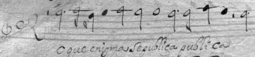 que enigma se publica publica